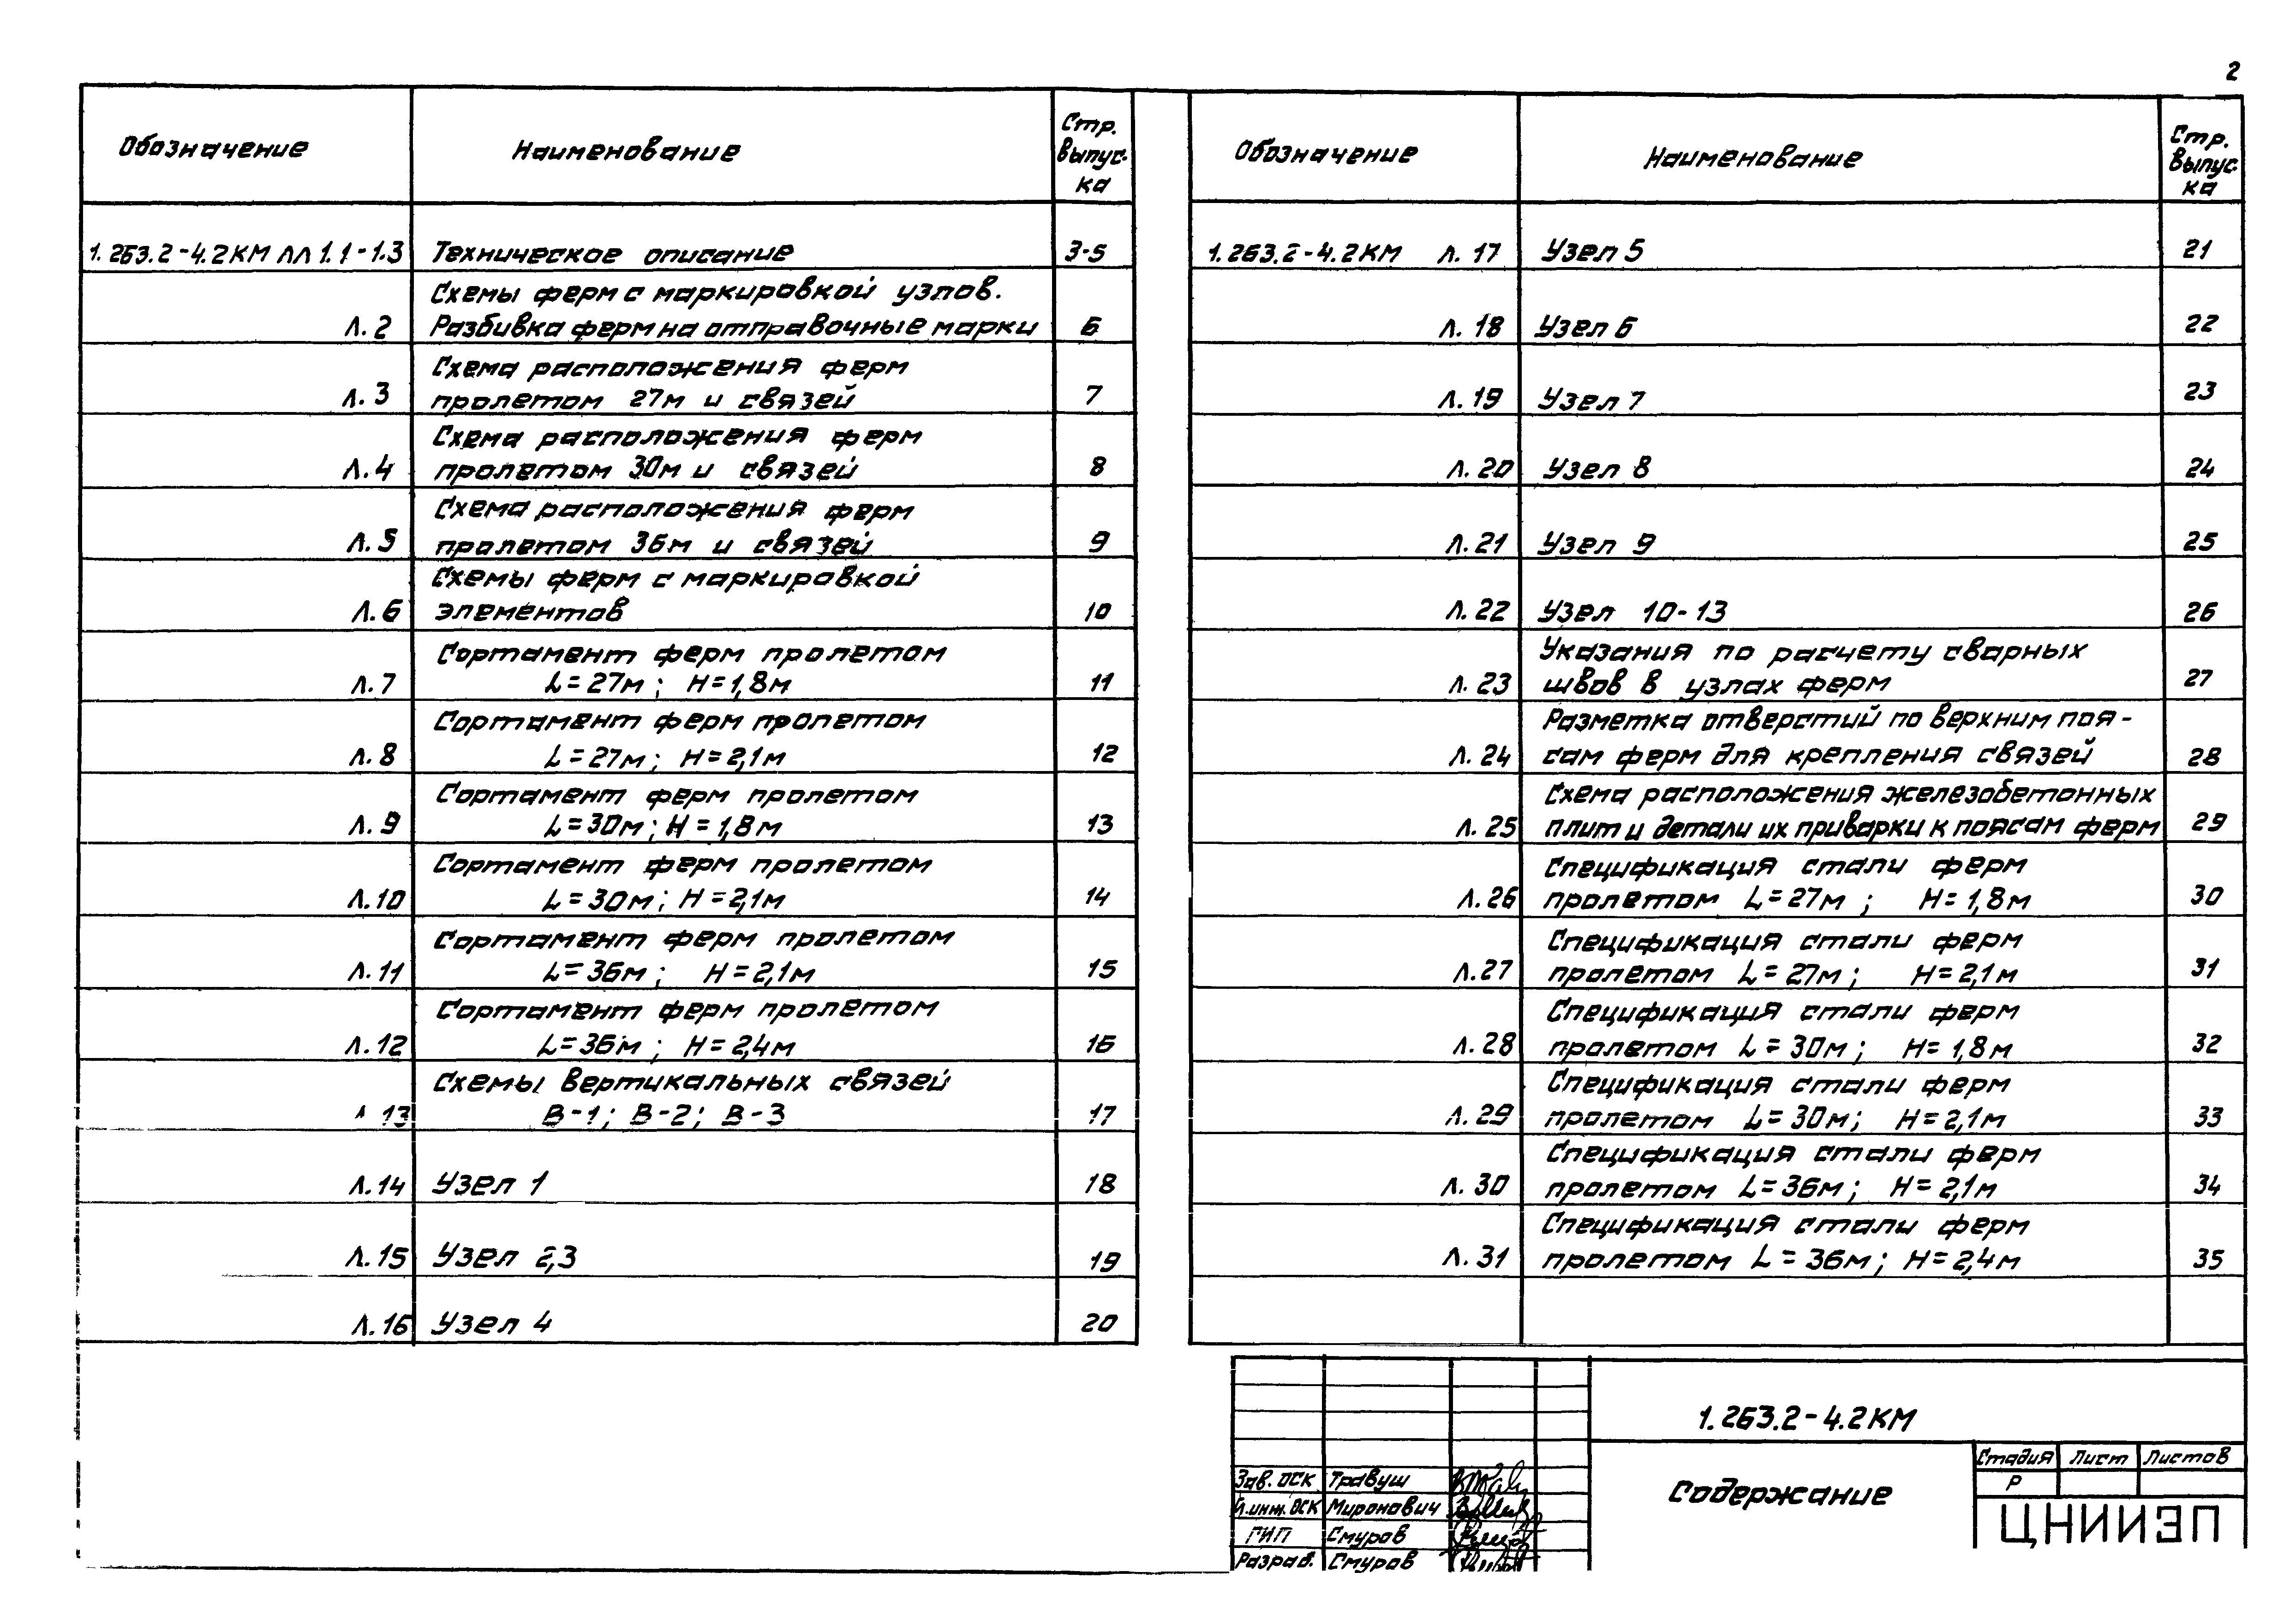 2
Обозначение
Наименование
Стр.
выпус-
ка
1.263.2-4.2КМ ЛЛ 1.1-1.3 Техническое описание 3-5
Схемы ферм с маркировкой узлов.
Л.2 Разбивка ферм на отправочные марки 6
Схема расположения ферм
Л.3 пролетом 27м и связей 7
Схема расположения ферм
Л.4 пролетом 30м и связей 8
Схема расположения ферм
Л.5 пролетом 36м и связей 9
Схемы ферм с маркировкой
Л.6 элементов 10
Сортамент ферм пролетом
Л.7 L=27м; H=1,8м 11
Сортамент ферм пролетом
Л.8 L=27м; H=2,1м 12
Сортамент ферм пролетом
Л.9 L=30м; H=1,8м 13
Сортамент ферм пролетом
Л.10 L=30м; H=2,1м 14
Сортамент ферм пролетом
Л.11 L=36м; H=2,1м 15
Сортамент ферм пролетом
Л.12 L=36м; H=2,4м 16
Схемы вертикальных связей
Л.13 В-1; В-2; В-3 17
Л.14 Узел 1 18
Л.15 Узел 2,3 19
Л.16 Узел 4 20
Обозначение
Наименование
Стр.
выпус-
ка
1.263.2-4.2КМ Л.17 Узел 5 21
Л.18 Узел 6 22
Л.19 Узел 7 23
Л.20 Узел 8 24
Л.21 Узел 9 25
Л.22 Узел 10-13 26
Указания по расчету сварных
Л.23 швов в узлах ферм 27
Разметка отверстий по верхним поя-
Л.24 сам ферм для крепления связей 28
Схема расположения железобетонных
Л.25 плит и детали их приварки к поясам ферм 29
Спецификация стали ферм
Л.26 пролетом L=27м; H=1,8м 30
Спецификация стали ферм
Л.27 пролетом L=27м; H=2,1м 31
Спецификация стали ферм
Л.28 пролетом L=30м; H=1,8м 32
Спецификация стали ферм
Л.29 пролетом L=30м; H=2,1м 33
Спецификация стали ферм
Л.30 пролетом L=36м; H=2,1м 34
Спецификация стали ферм
Л.31 пролетом L=36м; H=2,4м 35
1.263.2-4.2КМ
Содержание
Стадия Лист Листов
Р
ЦНИИЭП
Зав. ОСК Травуш
Гл.инж. ОСК Миронович
ГИП Смуров
Разраб. Смуров